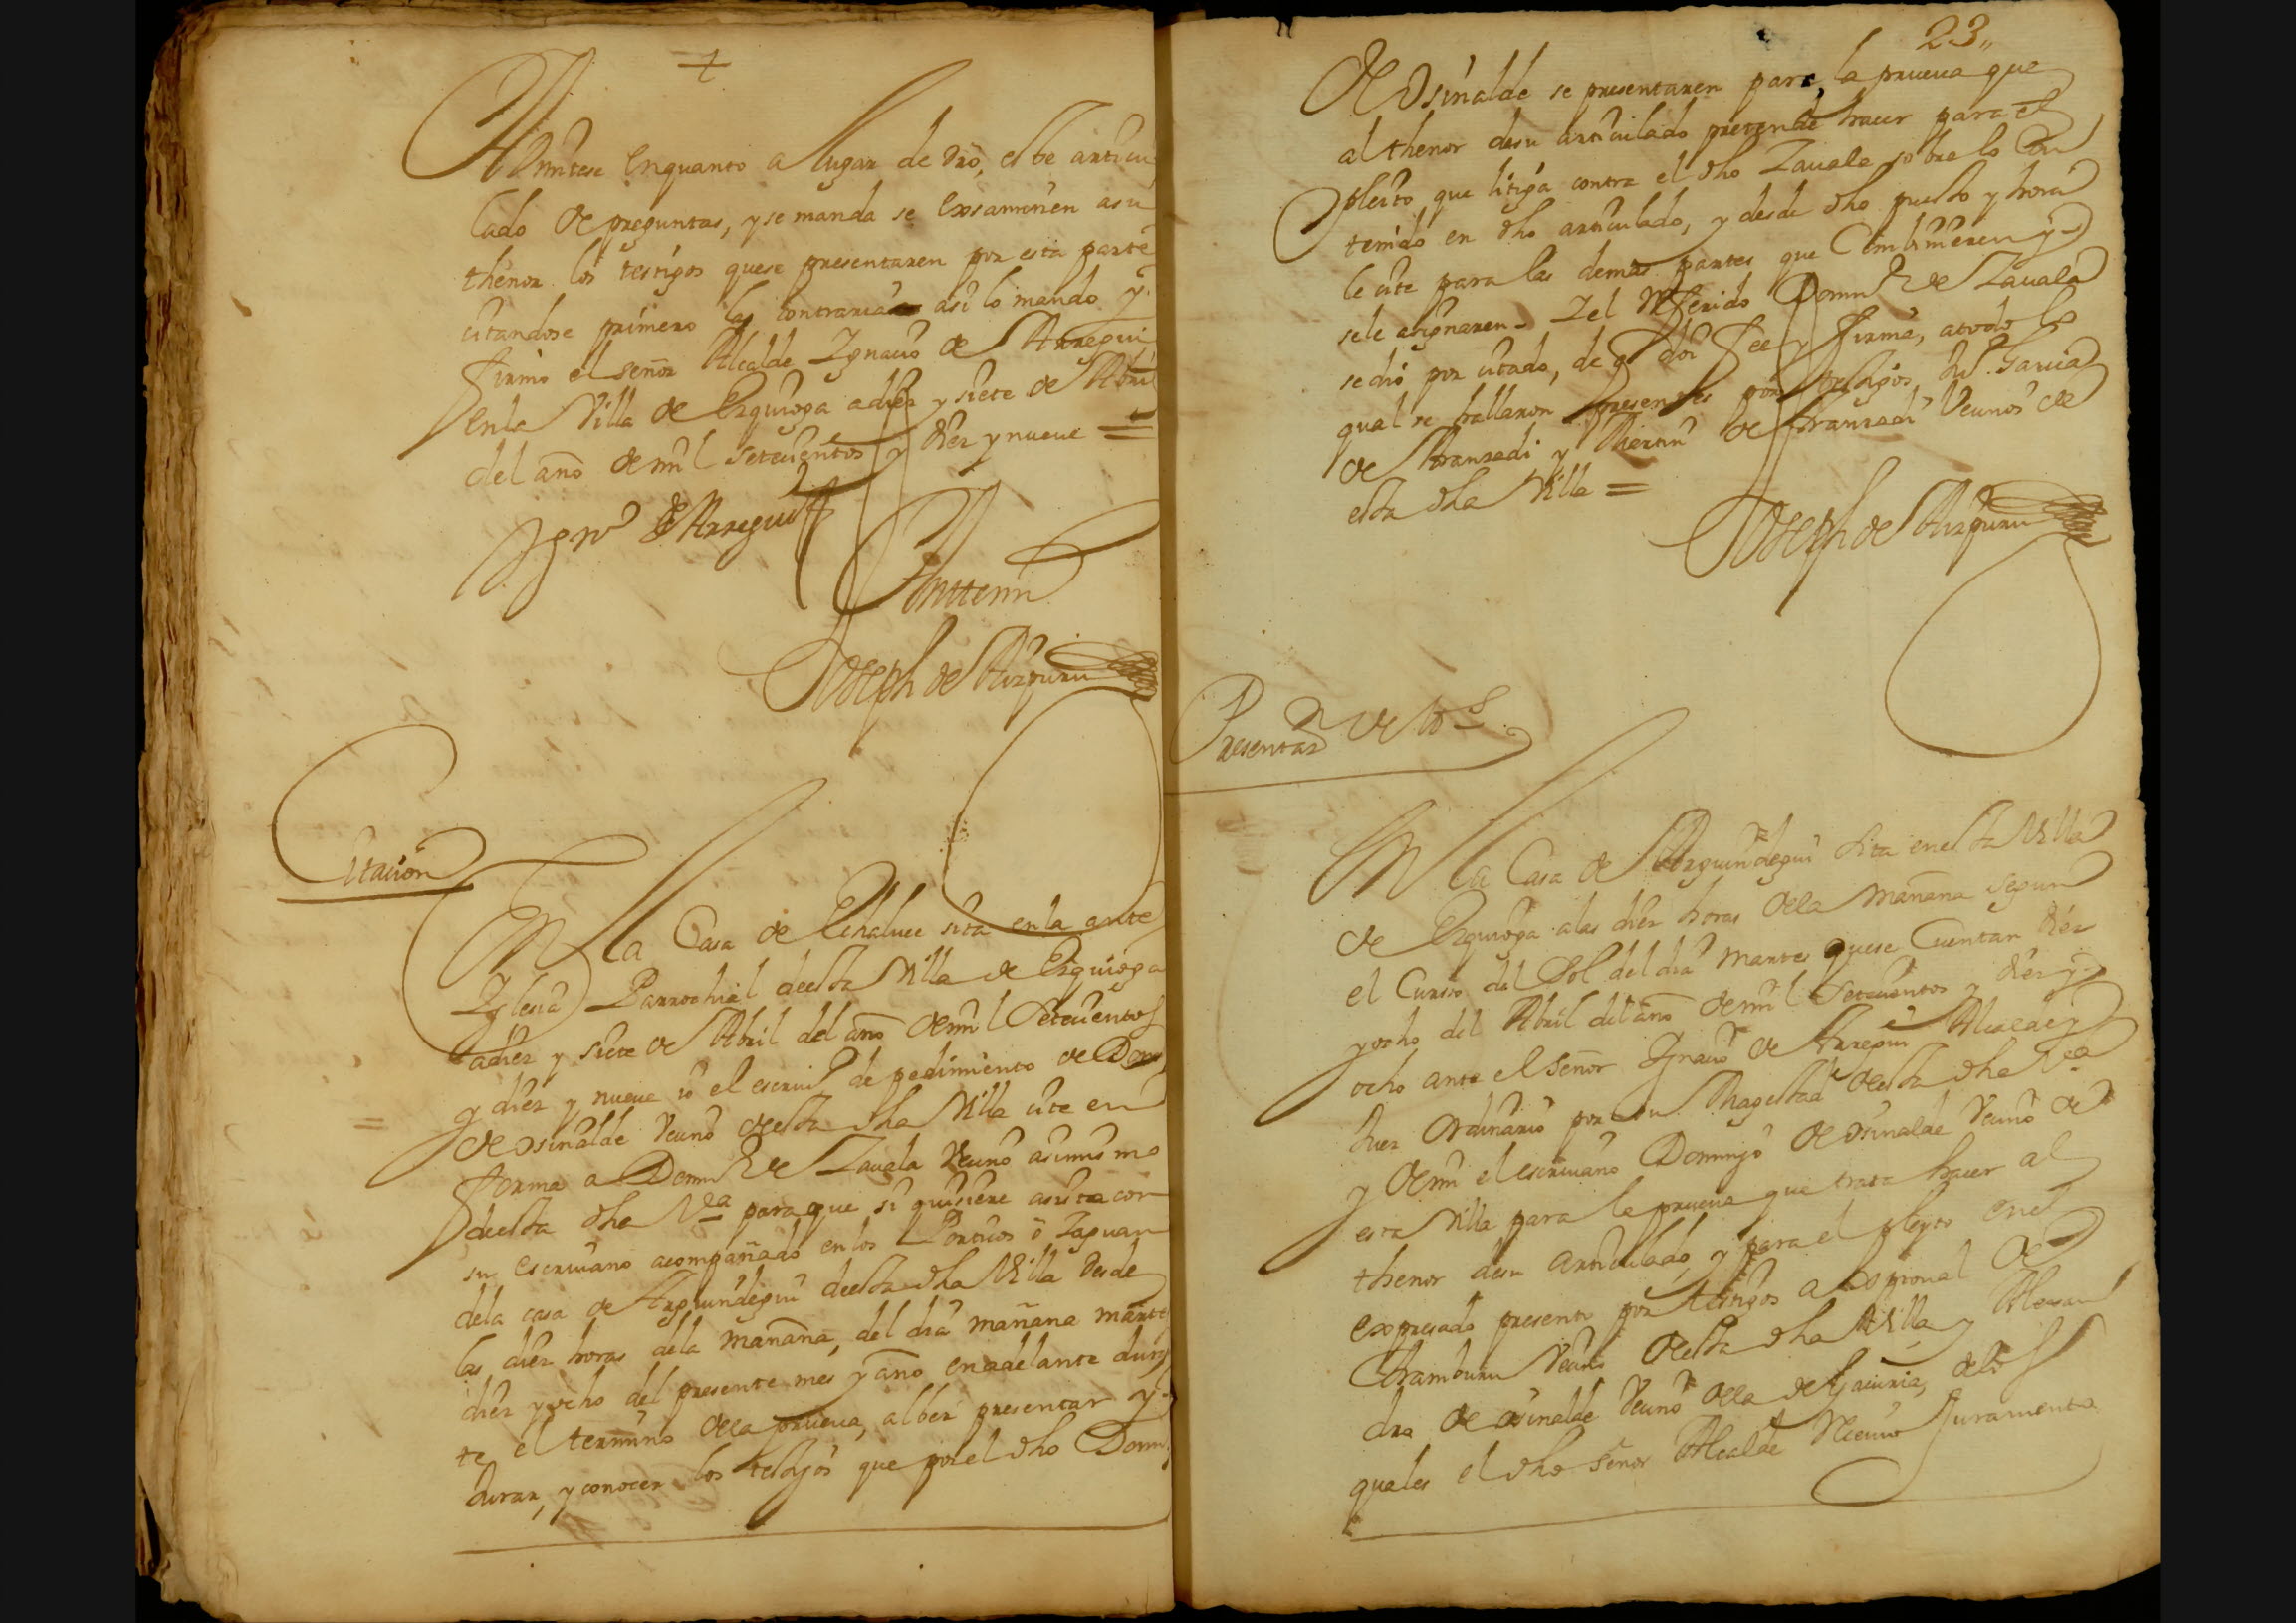 Admitese en quanto a lugar de dro, este articu
lado de preguntas, y se manda se exsaminen asu
thenor los testigos que se presentaren por esta parte
citandose primero la contraria asi lo mando y
firmo el señor Alcalde Ygnacio de Arregui
en la Villa de Ezquioga a diez y siete de Abril
del año de mil setecientos y diez y nueve =
Ygnº de Arregui
Antemi
Joseph de Aizpuru
Citacion
En la Casa de Echaluce sita en la ante
Yglesia Parrochial de esta Villa de Ezquioga
a diez y siete de Abril del año de mil Setecientos
y diez y nueve yo el escriuº de pedimiento de Domº
de Osinalde vecino de esta dha Villa cite en
forma a Domº de Zauala vecino asimismo
de esta dha Vª para que si quisiere asista con
su escriuano acompañado en los Porticos o Zaguan
dela casa de Arguindegui de esta dha Villa desde
las diez horas dela mañana, del dia mañana martes
diez y ocho del presente mes y año en adelante duran
te el termino dela prueua, al ber presentar y
Jurar, y conocer los testigos que por el dho Domº
23
de Osinalde se presentaren para la prueua que
al thenor desu articulado pretende hacer para el
pleito que litiga contra el dho Zauala sobre lo con
tenido en dho articulado, y desde dho puesto y hora
le cite para las demas partes que Combinieren y
sele asignaren. Y el referido Domº de Zauala
se dio por citado, de q doi fee y firme, atodo lo
qual se hallaron presentes por testigos, Garcia
de Aranzadi y Martin de Aranzadi Vecinos de
esta dha Villa =
Joseph de Aizpuru
Presentaon de tos
En la Casa de Arguindegui sita en esta Villa
de Ezquioga alas diez horas dela mañana segun
el Curso del Sol del dia martes que se Cuentan diez
y ocho del Abril del año de mil Setecientos y diez y
ocho ante el Señor Ygnacio de Arregui Alcalde y
Juez Ordinario por su Magestad de esta dha Vª
y de mi el escriuano Domingo de Osinalde Vecino de
esta Villa para la prueua que trata hacer al
thenor desu articulado, y para el pleyto en el
expresado presento por testigos a de
Aramburu Vecino de esta dha Villa y Alexan
dro de Osinalde Vecino dela de Gauiria, delos
quales el dho Señor Alcalde Reciuio Juramento